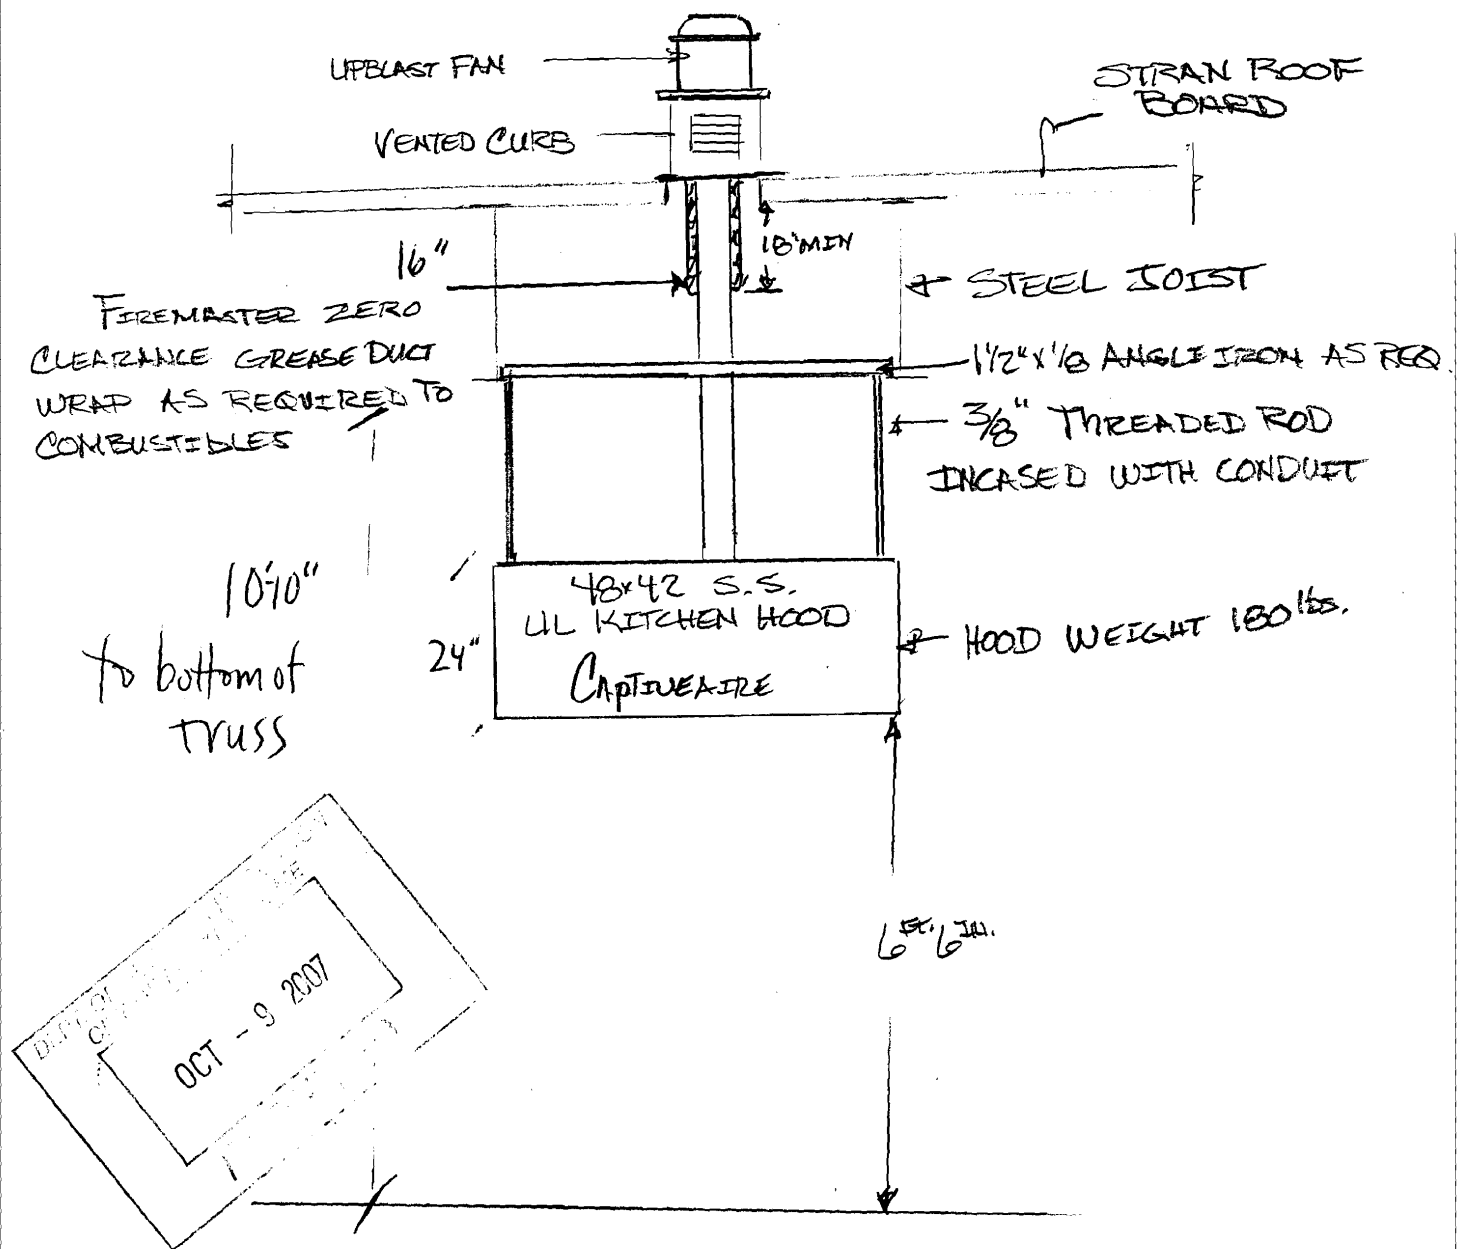 UPBLAST FAN
STRAN ROOF
BOARD
VENTED CURB
18" MIN
16"
STEEL JOIST
FIREMASTER ZERO
CLEARANCE GREASE DUCT
WRAP AS REQUIRED TO
COMBUSTIBLES
1 1/2" x 1/8 ANGLE IRON AS REQ.
3/8" THREADED ROD
INCASED WITH CONDUIT
10'-10"
to bottom of
TRUSS
24"
48x42 S.S.
UL KITCHEN HOOD
CAPTIVEAIRE
HOOD WEIGHT 180 lbs.
6 FT. 6 IN.
DEPT. OF
OCT - 9 2007